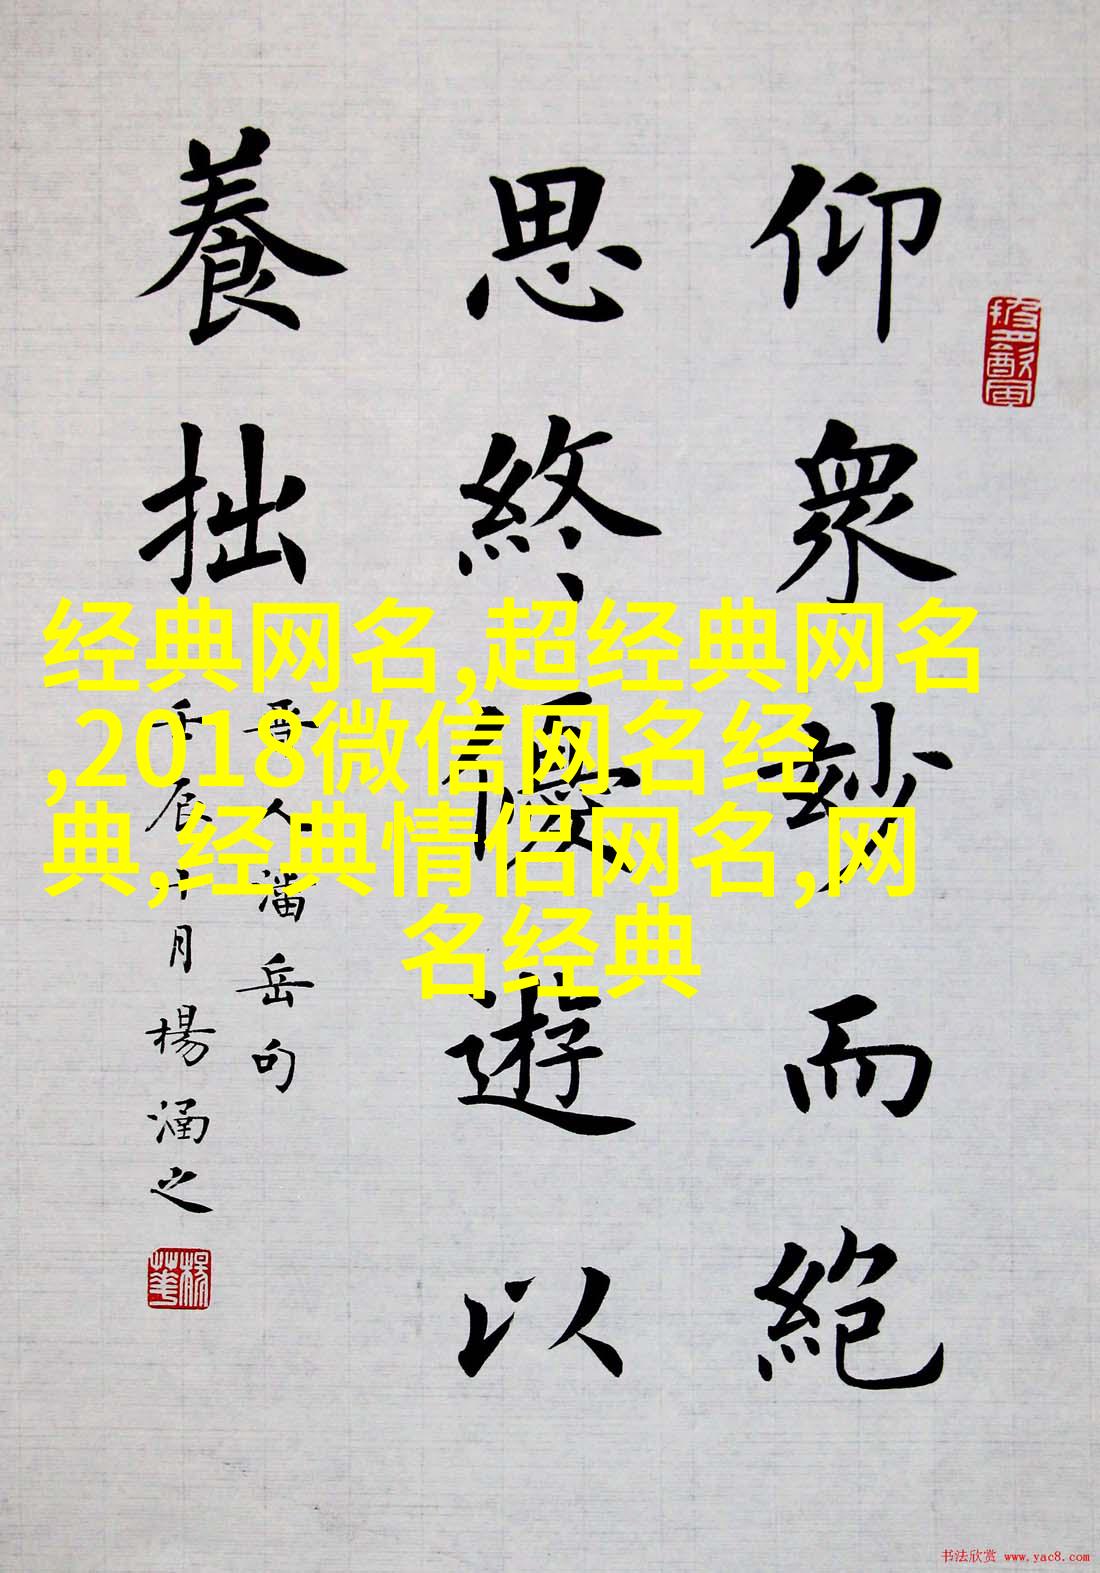 仰衆妙而絶
思終優遊以
養拙
晉人潘岳句
壬辰十月楊涵之
经典网名,超经典网名
,2018微信网名经
典,经典情侣网名,网
名经典
书法欣赏 www.yac8.com